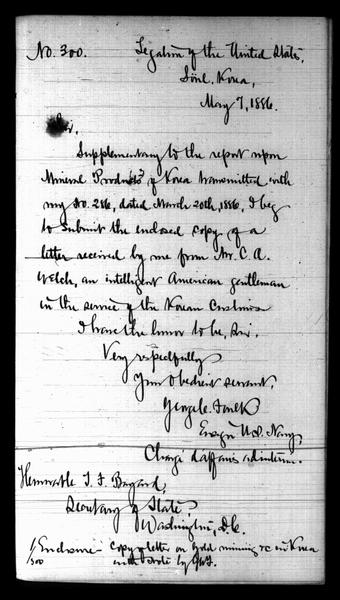 No. 300.
Legation of the United States,
Söul, Korea,
May 7, 1886.
Sir,
Supplementary to the report upon
Mineral Products of Korea transmitted with
my No. 286, dated March 20th, 1886, I beg
to submit the enclosed copy of a
letter received by me from Mr. C. A.
Welch, an intelligent American gentleman
in the service of the Korean Customs
I have the honor to be, Sir,
Very respectfully
Your obedient servant,
George C. Foulk
Ensign U.S. Navy,
Chargé d'affaires ad interim.
Honorable T. F. Bayard,
Secretary of State,
Washington, D.C.
1/ Enclosure Copy of letter on gold mining &c in Korea
/300 with note by